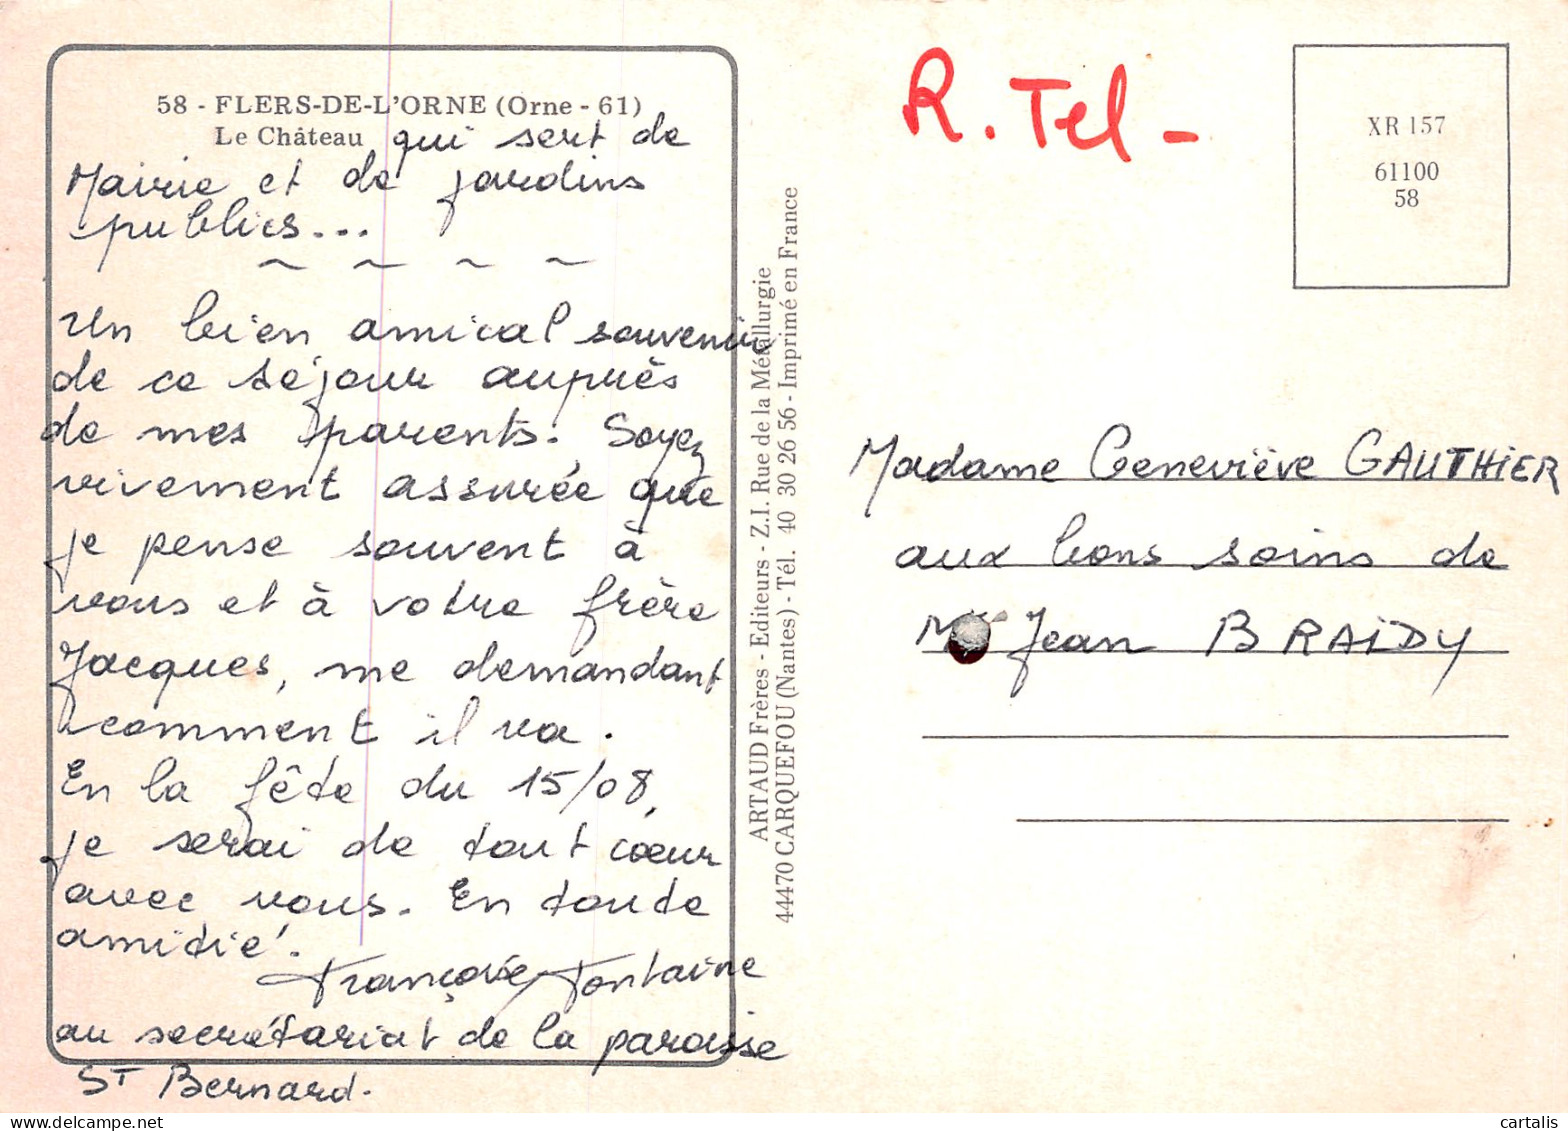 58 - FLERS-DE-L'ORNE (Orne - 61)
Le Château qui sert de
Mairie et de jardins
publics...
~ ~ ~ ~
Un bien amical souvenir
de ce séjour auprès
de mes parents. Soyez
vivement assurée que
je pense souvent à
vous et à votre frère
Jacques, me demandant
comment il va.
En la fête du 15/08,
je serai de tout cœur
avec vous. En toute
amitié.
Françoise Fontaine
au secrétariat de la paroisse
St Bernard.
ARTAUD Frères - Editeurs - Z.I. Rue de la Métallurgie
44470 CARQUEFOU (Nantes) - Tél. 40 30 26 56 - Imprimé en France
R. Tel -
XR 157
61100
58
Madame Geneviève GAUTHIER
aux bons soins de
Jean BRAIDY
cartalis